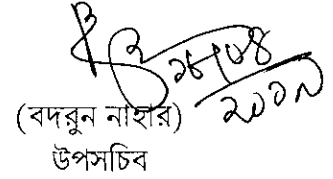 ১৮/০৪
২০১৯
(বদরুন নাহার)
উপসচিব